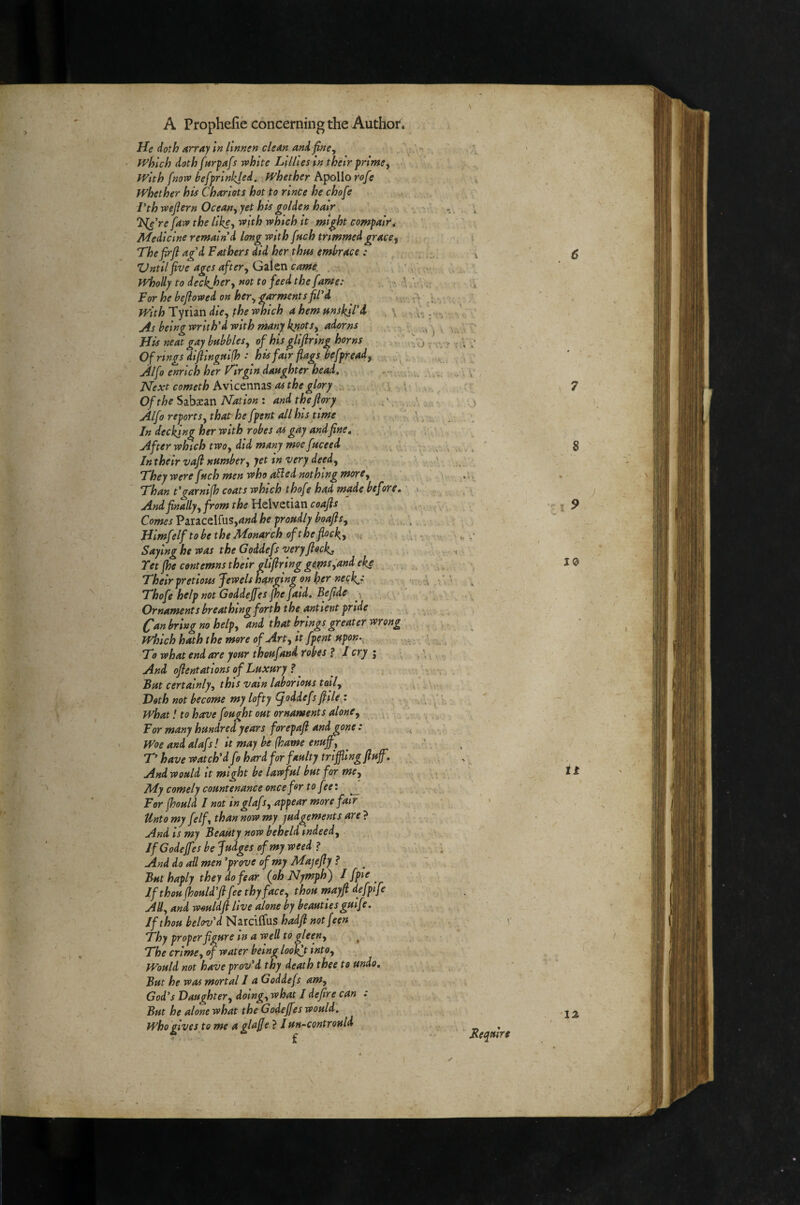 A Prophesie concerning the Author.
He doth array in linnen clean and fine,
Which doth surpass white Lillies in their prime,
With snow besprinkled. Whether Apollo rose
Whether his Chariots hot to rince he chose
I'th western Ocean, yet his golden hair
Ne're saw the like, with which it might compair.
Medicine remain'd long with such trimmed grace,
The first ag'd Fathers did her thus embrace : 6
Until five ages after, Galen came
Wholly to deck her, not to feed the same:
For he bestowed on her, garments fil'd
With Tyrian die, the which a hem unskil'd
As being writh'd with many knots, adorns
His neat gay bubbles, of his glistring horns
Of rings distinguish : his fair flags bespread,
Also enrich her Virgin daughter head.
Next cometh Avicennas as the glory 7
Of the Sabæan Nation : and the story
Also reports, that he spent all his time
In decking her with robes as gay and fine.
After which two, did many moe suceed 8
In their vast number, yet in very deed,
They were such men who acted nothing more,
Than t'garnish coats which those had made before.
And finally, from the Helvetian coasts 9
Comes Paracelsus, and he proudly boasts,
Himself to be the Monarch of the flock,
Saying he was the Goddess very flock,
Yet she contemns their glistring gems, and eke 10
Their pretious Jewels hanging on her neck:
Those help not Goddesses she said. Beside
Ornaments breathing forth the antient pride
Can bring no help, and that brings greater wrong
Which hath the more of Art, it spent upon.
To what end are your thousand robes ? I cry ;
And ostentations of Luxury ?
But certainly, this vain laborious toil,
Doth not become my lofty Goddess stile :
What ! to have sought out ornaments alone,
For many hundred years forepast and gone :
Woe and alass ! it may be shame enuff,
T' have watch'd so hard for faulty triffling stuff.
And would it might be lawful but for me, 11
My comely countenance once for to see:
For should I not in glass, appear more fair
Unto my self, than now my judgements are ?
And is my Beauty now beheld indeed,
If Godesses be Judges of my weed ?
And do all men 'prove of my Majesty ?
But haply they do fear (oh Nymph) I spie
If thou should'st see thy face, thou mayst despise
All, and wouldst live alone by beauties guise.
If thou belov'd Narcissus hadst not seen
Thy proper figure in a well to gleen,
The crime, of water being look't into,
Would not have prov'd thy death thee to undo.
But he was mortal I a Goddess am,
God's Daughter, doing, what I desire can :
But he alone what the Godesses would. 12
Who gives to me a glasse ? I un-contrould
f Require